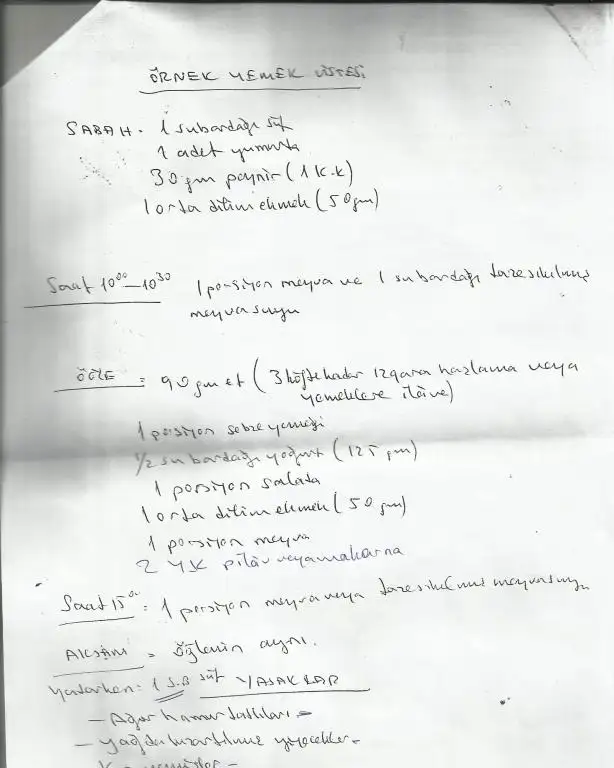 ÖRNEK YEMEK LİSTESİ
SABAH. 1 subardağı süt
1 adet yumurta
30 gm peynir (1 K.K)
1 orta dilim ekmek (50 gm)
Saat 10⁰⁰–10³⁰ 1 porsiyon meyva ve 1 su bardağı taze sıkılmış
meyva suyu
ÖĞLE = 90 gm et (3 köfte kadar ızgara haşlama veya
yemeklere ilave)
1 porsiyon sebze yemeği
1/2 su bardağı yoğurt (125 gm)
1 porsiyon salata
1 orta dilim ekmek (50 gm)
1 porsiyon meyva
2 YK pilav veya makarna
Saat 15⁰⁰ = 1 porsiyon meyva veya taze sıkılmış meyvasuyu
AKŞAM = Öğlenin aynı.
Yatarken: 1 S.B süt YASAKLAR
– Ağır hamur tatlıları –
– Yağda kızartılmış yiyecekler –